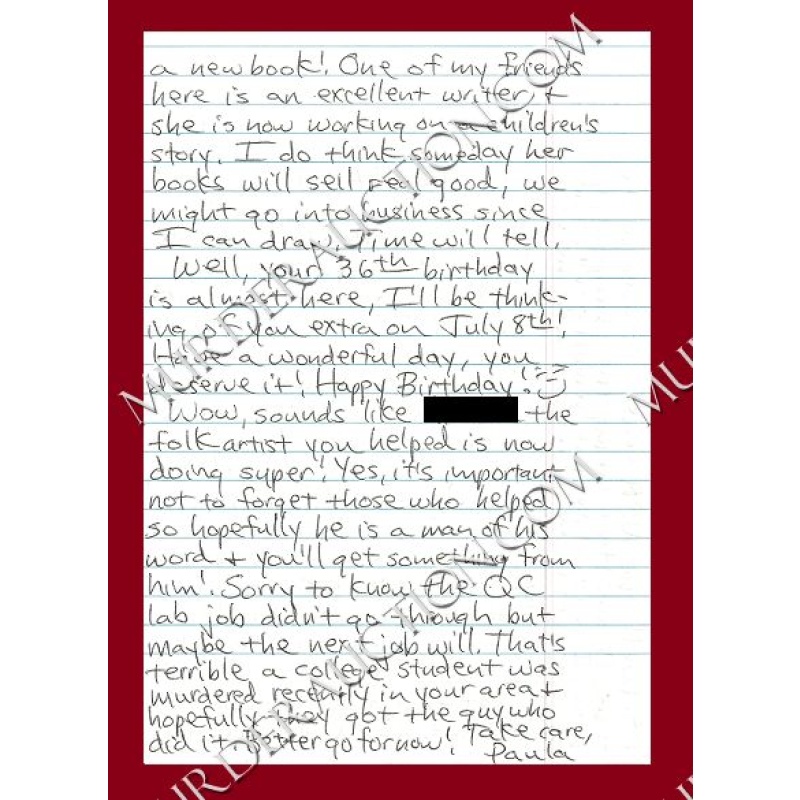 a new book! One of my friends
here is an excellent writer, +
she is now working on a children's
story. I do think someday her
books will sell real good, we
might go into business since
I can draw. Time will tell.
Well, your 36th birthday
is almost here, I'll be think-
ing of you extra on July 8th!
Have a wonderful day, you
deserve it! Happy Birthday!
Wow, sounds like the
folk artist you helped is now
doing super! Yes, it's important
not to forget those who helped
so hopefully he is a man of his
word + you'll get something from
him! Sorry to know the QC
lab job didn't go through but
maybe the next job will. That's
terrible a college student was
murdered recently in your area +
hopefully they got the guy who
did it. Better go for now! Take care,
Paula
MURDERAUCTION.COM
MURDERAUCTION.COM
MU
MU